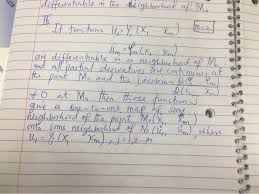 differentiable in the neighborhood of M₀
Th
If functions u₁ = φ₁(x₁ xₘ) m=n
uₘ = φₘ(x₁ xₘ)
are differentiable in a neighborhood of M₀
and all partial derivatives are continuous at
the point M₀ and the Jacobian D(u₁ uₘ)
D(x₁ xₘ)
≠0 at M₀ then these functions
give a one-to-one map of some
neighborhood of the point M₀(x₁ xₘ)
onto some neighborhood of N₀(u₁ uₘ), where
= (x₁ xₘ), 1,2 m